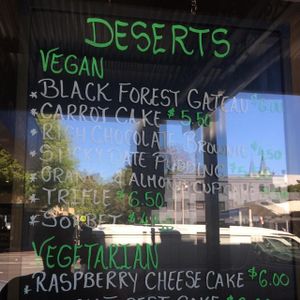 DESERTS
VEGAN
* BLACK FOREST GATEAU $6.00
* CARROT CAKE $5.50
* RICH CHOCOLATE BROWNIE $4.50
* STICKY DATE PUDDING
* ORANGE & ALMOND CUPCAKE
* TRIFLE $6.50
* SORBET
VEGETARIAN
* RASPBERRY CHEESE CAKE $6.00